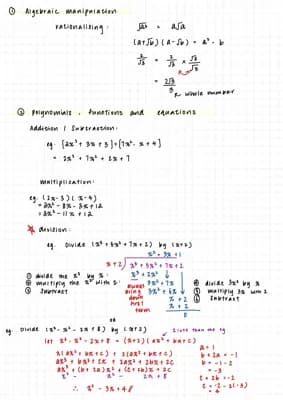 ① Algebraic manipulation
rationalising : √a³ = a√a
(a+√b)(a-√b) = a² - b
2/√3 = 2/√3 × √3/√3
= 2√3/3
whole number
② Polynomials, functions and equations
Addition / Subtraction:
eg. [2x³ + 3x + 3] + [7x² - x + 4]
= 2x³ + 7x² + 2x + 7
multiplication:
eg. (2x - 3)(x - 4)
= 2x² - 8x - 3x + 12
= 2x² - 11x + 12
division:
eg. Divide (x³ + 5x² + 7x + 2) by (x+2)
x² + 3x + 1
x+2 x³ + 5x² + 7x + 2
① divide the x³ by x
② multiply the x² with 2
③ subtract
x³ + 2x²
3x² + 7x
3x² + 6x
x + 2
x + 2
0
always bring down next term
④ divide 3x² by x
⑤ multiply 3x with 2
⑥ subtract
or
eg. Divide (x³ - x² - 2x + 8) by (x+2)
let x³ - x² - 2x + 8 = (x+2)(ax² + bx + c)
x(ax² + bx + c) + 2(ax² + bx + c)
ax³ + bx² + cx + 2ax² + 2bx + 2c
ax³ + (b + 2a)x² + (c + 2b)x + 2c
x³ - x² - 2x + 8
∴ x² - 3x + 4
a = 1
b + 2a = -1
b = -1 - 2
= -3
c + 2b = -2
c = -2 - 2(-3)